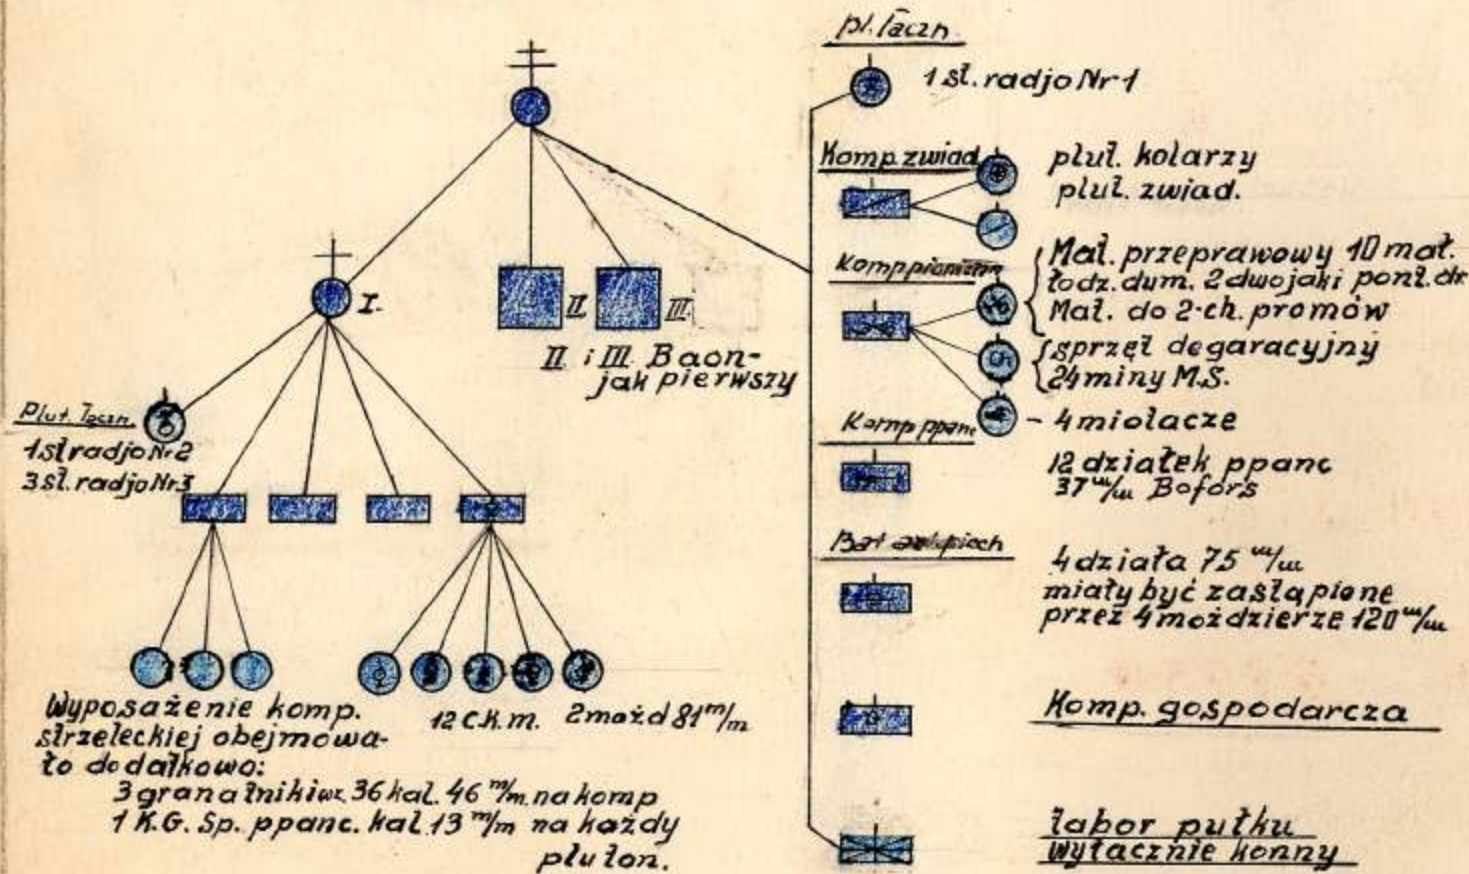 I.
II
III
II i III Baon-
jak pierwszy
Plut. Łączn.
1 st radjo Nr 2
3 st. radjo Nr 3
Wyposażenie komp.
strzeleckiej obejmowa-
ło dodatkowo:
3 granatniki wz. 36 kal. 46 m/m. na komp
1 K.G. Sp. ppanc. kal. 13 m/m na każdy
pluton.
12 C.K.M.
2 możd 81 m/m
pl. Łączn.
1 st. radjo Nr 1
Komp. zwiad
plut. kolarzy
plut. zwiad.
Komp. pionierów
Mat. przeprawowy 10 mał.
łodz. dum. 2 dwojaki pont. dr.
Mat. do 2-ch. promów
Ch
sprzęt degaracyjny
24 miny M.S.
- 4 miotacze
Komp ppanc
12 działek ppanc
37 m/m Bofors
Bat piech
4 działa 75 m/m
miały być zastąpione
przez 4 możdzierze 120 m/m
Komp. gospodarcza
Tabor pułku
wyłącznie konny